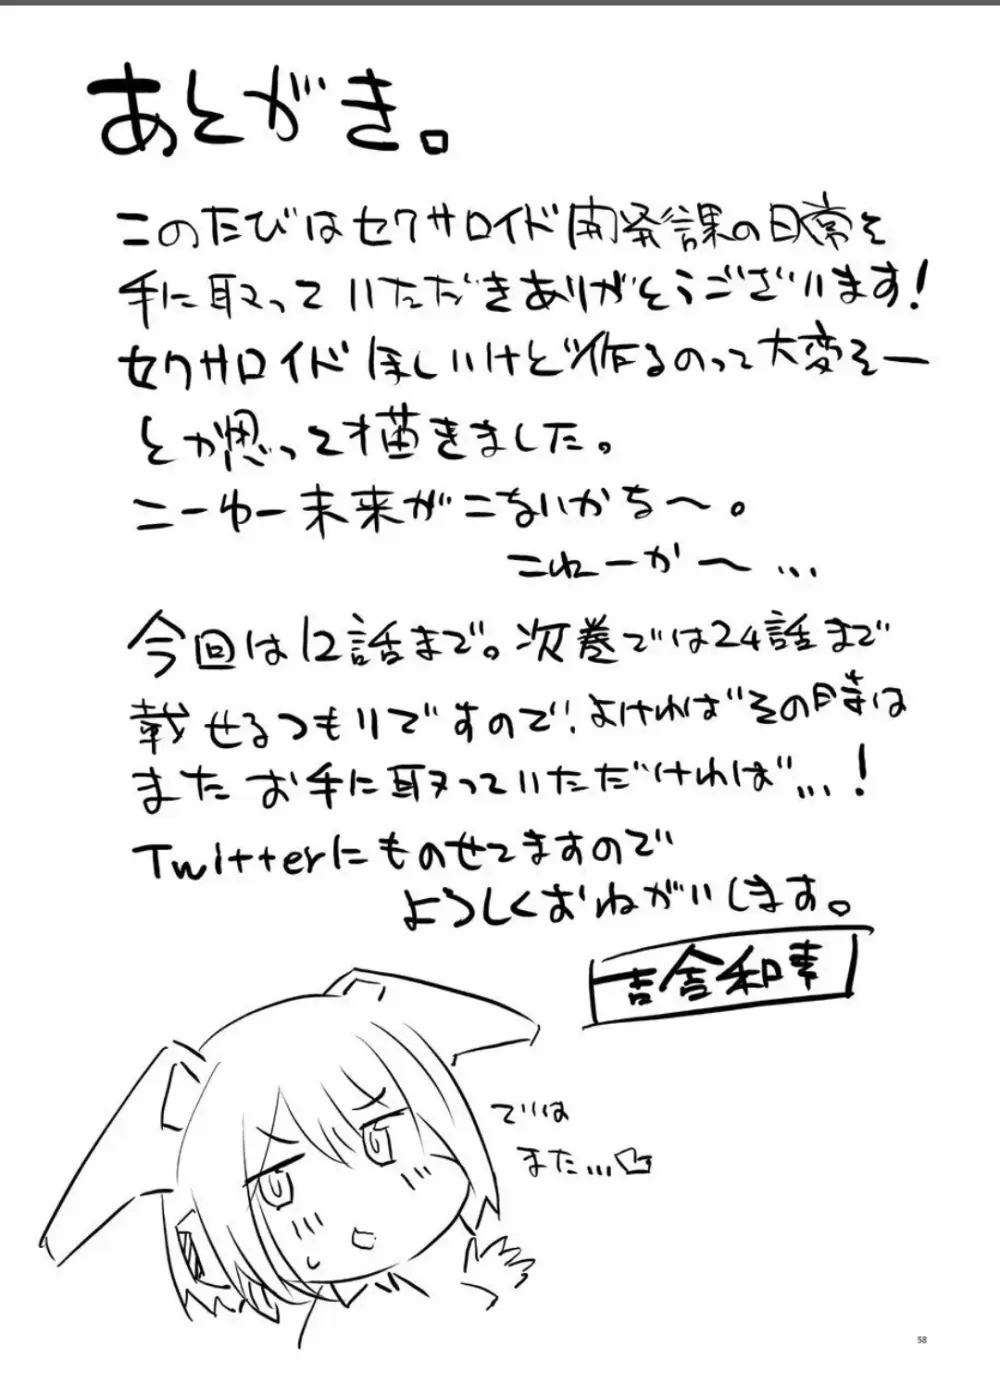 あとがき。
このたびはセクサロイド開発課の日常を
手に取っていただきありがとうございます!
セクサロイドほしいけど作るのって大変そー
とか思って描きました。
こーゆー未来がこないかな〜。
これーが〜...
今回は12話まで。次巻では24話まで
載せるつもりですので、よければその時は
またお手に取っていただければ...!
Twitterにものせてますので
よろしくおねがいします。
吉舎和幸
では
また...
58